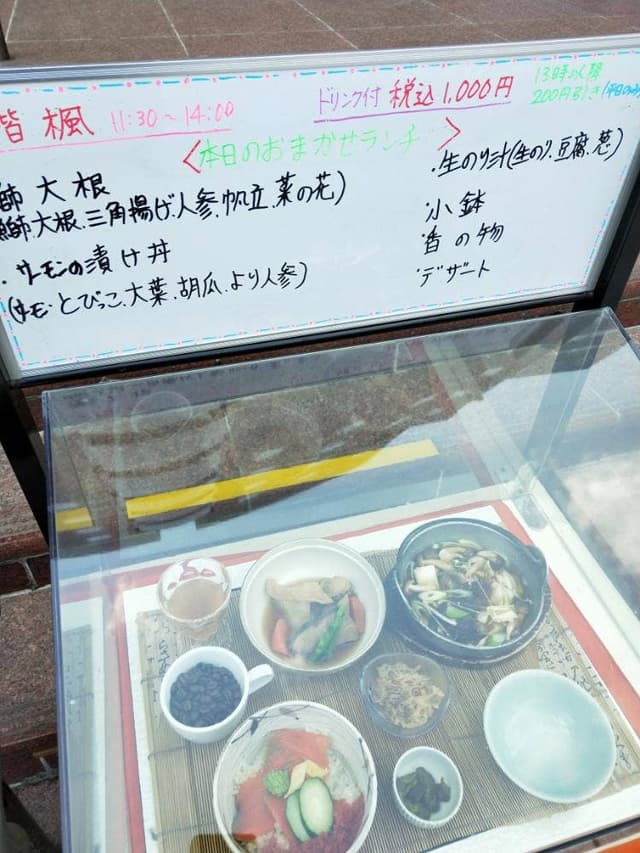 皆楓 11:30～14:00 ドリンク付 税込1,000円 13時以降
200円引き(平日のみ)
<本日のおまかせランチ>
鰤大根
(鰤、大根、三角揚げ、人参、帆立、菜の花)
・サーモンの漬け丼
(サーモン・とびっこ、大葉、胡瓜、より人参)
・生のり汁(生のり、豆腐、葱)
・小鉢
・香の物
・デザート